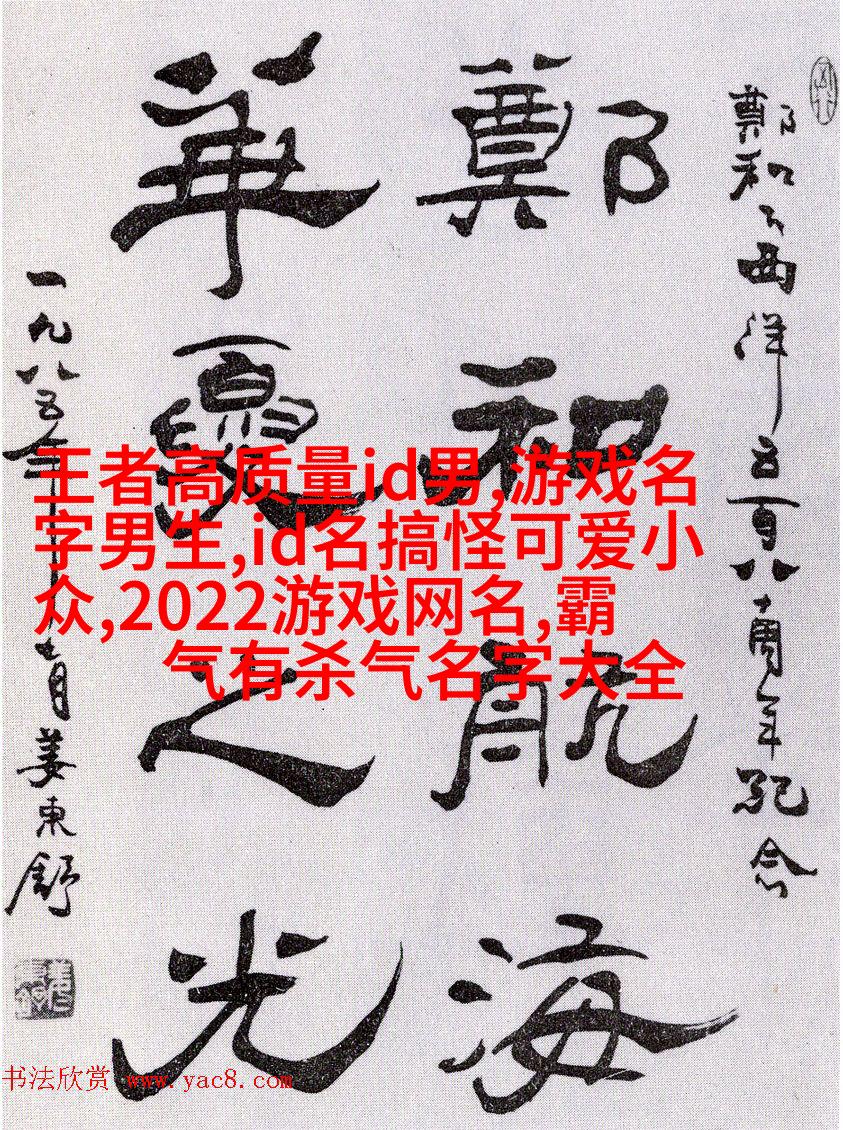 鄭和下西洋五百八十周年紀念
鄭和航海
華夏之光
一九八五年十一月姜東舒
王者高质量id男,游戏名
字男生,id名搞怪可爱小
众,2022游戏网名,霸
气有杀气名字大全
书法欣赏 www.yac8.com